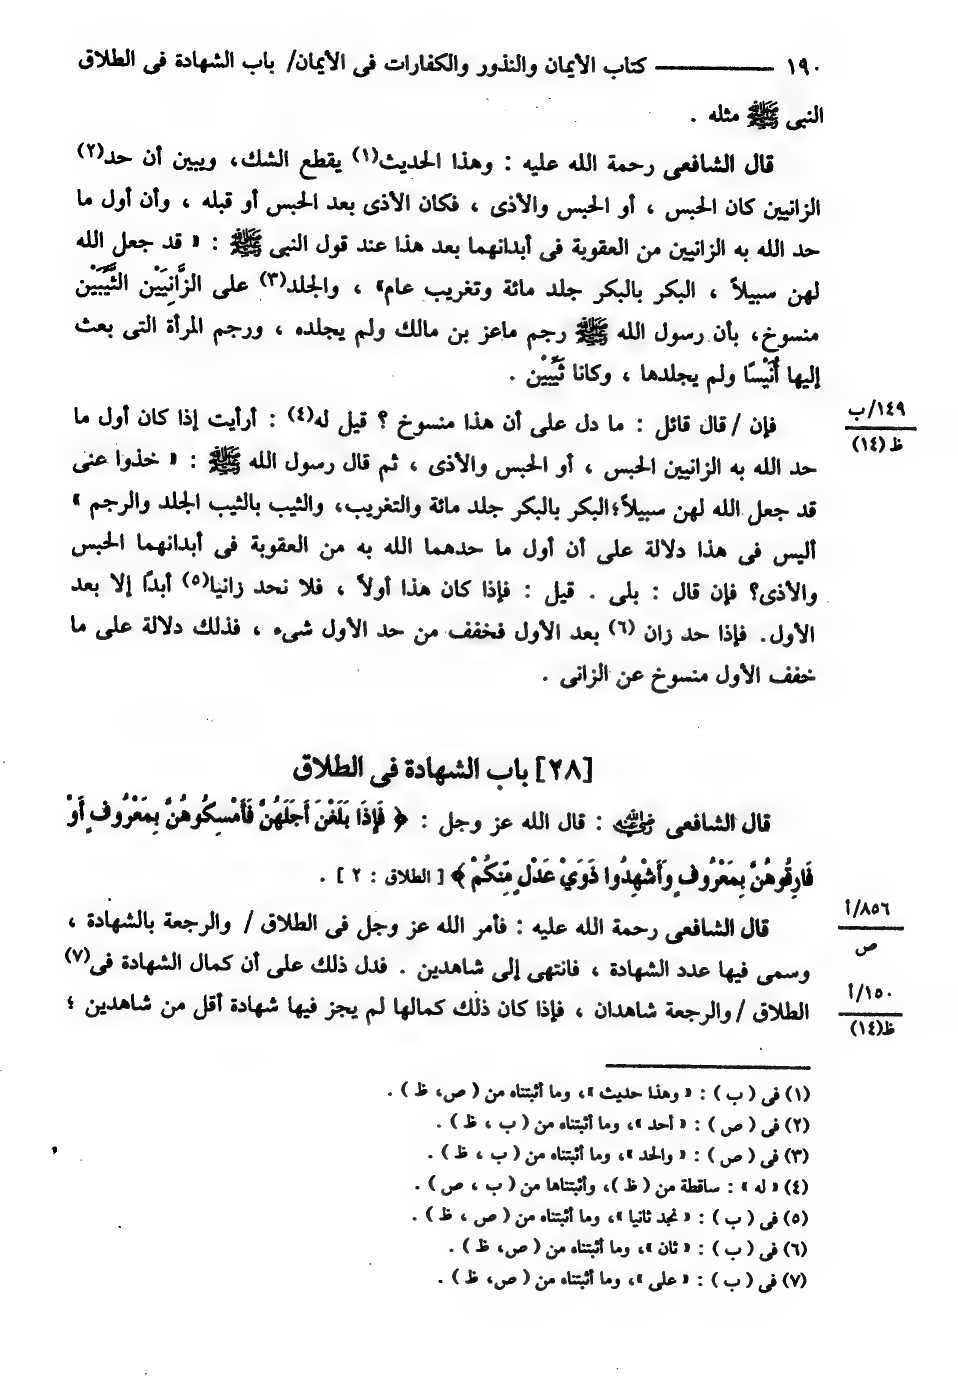 ١٩٠ ——— كتاب الأيمان والنذور والكفارات فى الأيمان/ باب الشهادة فى الطلاق
النبى ﷺ مثله .
قال الشافعى رحمة الله عليه : وهذا الحديث(١) يقطع الشك، ويبين أن حد(٢)
الزانيين كان الحبس ، أو الحبس والأذى ، فكان الأذى بعد الحبس أو قبله ، وأن أول ما
حد الله به الزانيين من العقوبة فى أبدانهما بعد هذا عند قول النبى ﷺ : « قد جعل الله
لهن سبيلاً ، البكر بالبكر جلد مائة وتغريب عام» ، والجلد(٣) على الزَّانِيَيْن الثَّيِّبَيْن
منسوخ، بأن رسول الله ﷺ رجم ماعز بن مالك ولم يجلده ، ورجم المرأة التى بعث
إليها أُنَيْسًا ولم يجلدها ، وكانا ثَيِّبَيْن .
فإن / قال قائل : ما دل على أن هذا منسوخ ؟ قيل له(٤) : أرأيت إذا كان أول ما
١٤٩/ب
ظ (١٤)
حد الله به الزانيين الحبس ، أو الحبس والأذى ، ثم قال رسول الله ﷺ : « خذوا عنى
قد جعل الله لهن سبيلاً؛ البكر بالبكر جلد مائة والتغريب، والثيب بالثيب الجلد والرجم »
أليس فى هذا دلالة على أن أول ما حدهما الله به من العقوبة فى أبدانهما الحبس
والأذى؟ فإن قال : بلى . قيل : فإذا كان هذا أولاً ، فلا نحد زانيا(٥) أبدًا إلا بعد
الأول. فإذا حد زان (٦) بعد الأول فخفف من حد الأول شىء ، فذلك دلالة على ما
خفف الأول منسوخ عن الزانى .
[٢٨] باب الشهادة فى الطلاق
قال الشافعى رضي الله عنه : قال الله عز وجل : ﴿ فَإِذَا بَلَغْنَ أَجَلَهُنَّ فَأَمْسِكُوهُنَّ بِمَعْرُوفٍ أَوْ
فَارِقُوهُنَّ بِمَعْرُوفٍ وَأَشْهِدُوا ذَوَيْ عَدْلٍ مِّنكُمْ ﴾ [ الطلاق : ٢ ] .
قال الشافعى رحمة الله عليه : فأمر الله عز وجل فى الطلاق / والرجعة بالشهادة ،
٨٥٦/أ
ص
وسمى فيها عدد الشهادة ، فانتهى إلى شاهدين . فدل ذلك على أن كمال الشهادة فى(٧)
الطلاق / والرجعة شاهدان ، فإذا كان ذلك كمالها لم يجز فيها شهادة أقل من شاهدين ؛
١٥٠/أ
ظ(١٤)
(١) فى ( ب ) : « وهذا حديث »، وما أثبتناه من ( ص، ظ ) .
(٢) فى ( ص ) : « أحد »، وما أثبتناه من ( ب ، ظ ) .
(٣) فى ( ص ) : « والحد »، وما أثبتناه من ( ب ، ظ ) .
(٤) « له » : ساقطة من ( ظ )، وأثبتناها من ( ب ، ص ) .
(٥) فى ( ب ) : « نجد ثانيا »، وما أثبتناه من ( ص ، ظ ) .
(٦) فى ( ب ) : « ثان »، وما أثبتناه من ( ص، ظ ) .
(٧) فى ( ب ) : « على »، وما أثبتناه من ( ص، ظ ) .